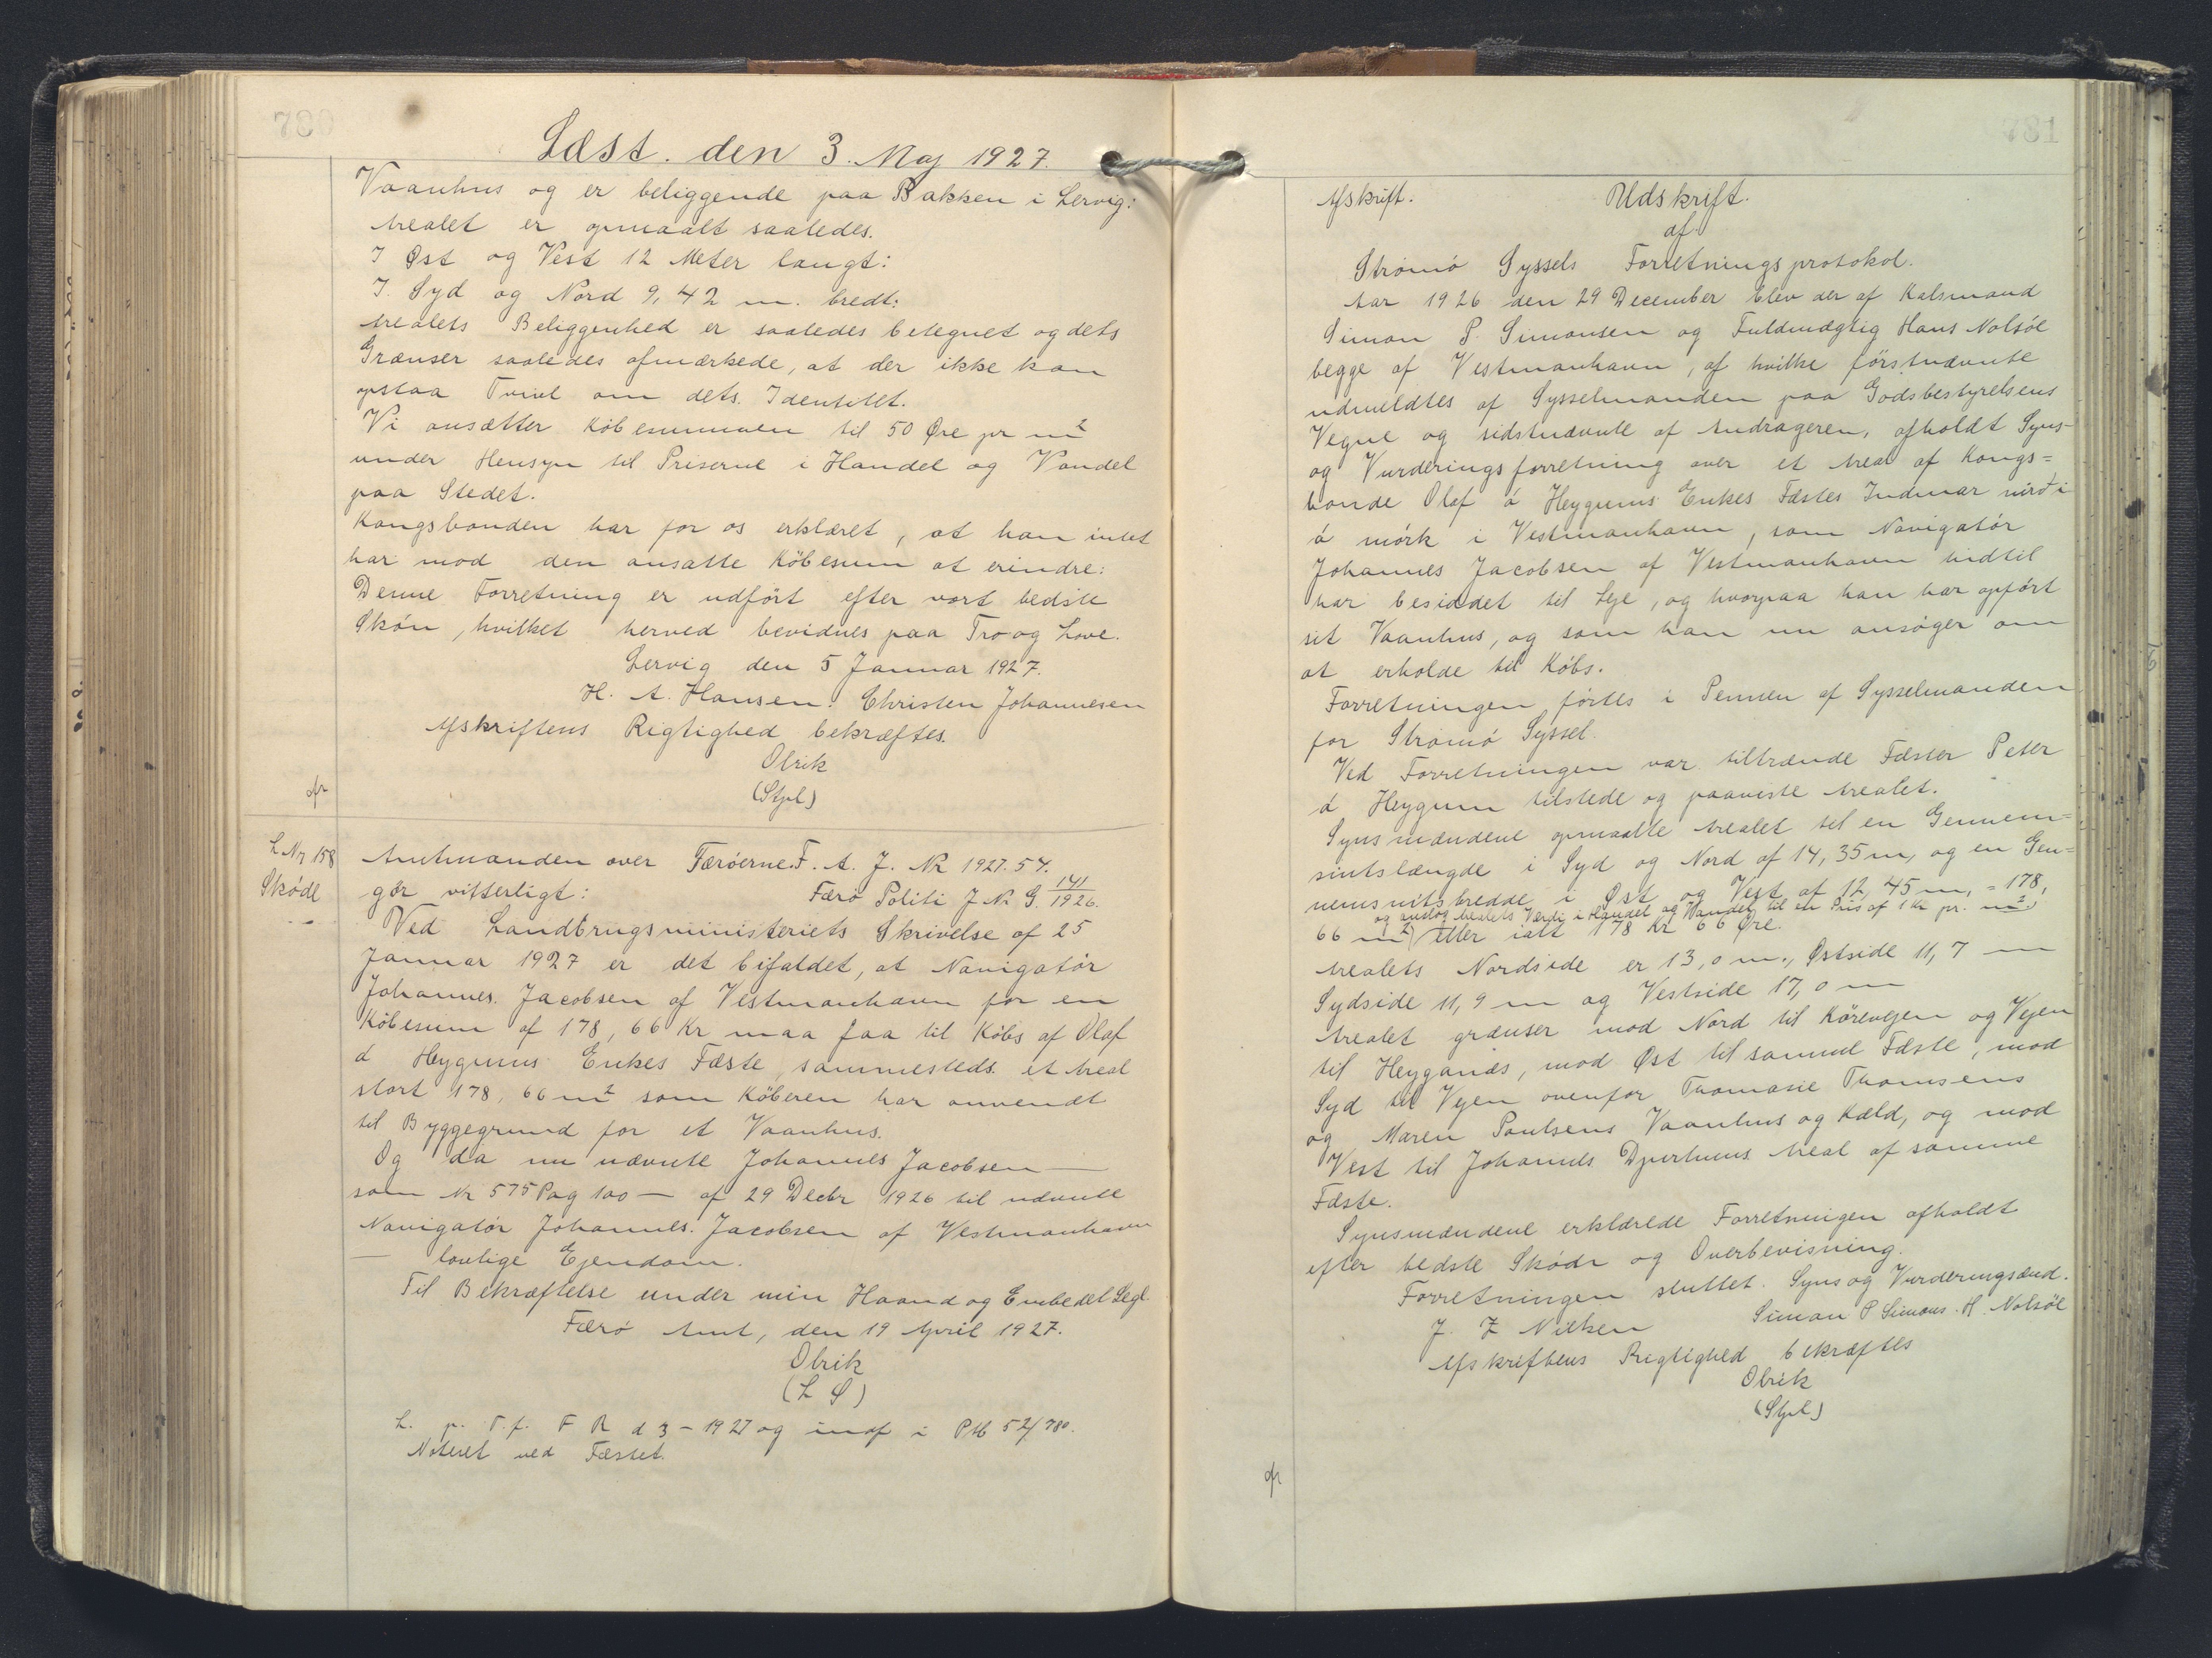 780
Læst. den 3. Maj 1927.
Vaanhus og er beliggende paa Bakken i Lervig:
Arealet er opmaalt saaledes.
I Øst og Vest 12 Meter langt:
I. Syd og Nord 9,42 m. bredt:
Arealets Beliggenhed er saaledes betegnet og dets
Grænser saaledes afmærkede, at der ikke kan
opstaa Tvivl om dets Identitet.
Vi ansætter Købesummen til 50 Øre pr m²
under Hensyn til Priserne i Handel og Vandel
paa Stedet.
Kongsbonden har for os erklæret, at han intet
har mod den ansatte Købesum at erindre:
Denne Forretning er udført efter vort bedste
Skøn, hvilket herved bevidnes paa Tro og Love.
Lervig den 5 Januar 1927.
H. A. Hansen. Christen Johannesen
Afskriftens Rigtighed bekræftes.
Olrik
(Stpl)
L Nr 158
Skøde
Amtmanden over Færøerne. F. A. J. Nr 1927. 54.
gør vitterligt: Færø Politi J Nr G. 141/1926.
Ved Landbrugsministeriets Skrivelse af 25
Januar 1927 er det bifaldet, at Navigatør
Johannes. Jacobsen af Vestmanhavn for en
Købesum af 178,66 Kr maa faa til Købs af Olaf
á Heygums Enkes Fæste sammesteds et Areal
stort 178,66 m² som Køberen har anvendt
til Byggegrund for et Vaanhus.
Og da nu nævnte Johannes Jacobsen —
som Nr 575 Pag 100 — af 29 Decbr 1926 til nævnte
Navigatør Johannes. Jacobsen af Vestmanhavn
— lovlige Ejendom.
Til Bekræftelse under min Haand og Embedet Segl
Færø Amt, den 19 April 1927.
Olrik
(L S)
L. p. T.f. F R d 3 - 1927 og indf i Ptk 52/780.
Noteret ved Fæstet.
781
Afskrift. Udskrift.
af
Strømø Syssels Forretningsprotokol.
Aar 1926 den 29 December blev der af Kalsmand
Simon P. Simonsen og Fuldmægtig Hans Nolsøe
begge af Vestmanhavn, af hvilke førstnævnte
udmeldtes af Sysselmanden paa Godsbestyrelsens
Vegne og sidstnævnte af Andrageren, afholdt Syns-
og Vurderingsforretning over et Areal af Kongs=
bonde Olaf á Heygums Enkes Fæstes Indmar
á mørk i Vestmanhavn, som Navigatør
Johannes Jacobsen af Vestmanhavn hidtil
har besiddet til Leje, og hvorpaa han har opført
sit Vaanhus, og som han nu ansøger om
at erholde til Købs.
Forretningen førtes i Pennen af Sysselmanden
for Strømø Syssel.
Ved Forretningen var tiltrædende Fæster Peter
á Heygum tilstede og paaviste Arealet.
Synsmændene opmaalte Arealet til en Gennem=
snitslængde i Syd og Nord af 14,35 m, og en Gen=
nemsnitsbredde i Øst og Vest af 12,45 m, = 178,
og anslog Arealets Værdi i Handel og Vandel til en Pris af 1 Kr pr. m²
66 m² eller ialt 178 Kr 66 Øre.
Arealets Nordside er 13,0 m., Østside 11,7 m
Sydside 11,9 m og Vestside 17,0 m
Arealet grænser mod Nord til Kørevejen og Vejen
til Heyganæs, mod Øst til samme Fæste, mod
Syd til Vejen ovenfor Thomasie Thomsens
og Maren Poulsens Vaanhus og Kæld, og mod
Vest til Johannes Djurhuus Areal af samme
Fæste.
Synsmændene erklærede Forretningen afholdt
efter bedste Skøde og Overbevisning.
Forretningen sluttet. Syns og Vurderingsænd.
J. Z Nilken Simon P Simons. H. Nolsøe
Afskriftens Rigtighed bekræftes
Olrik
(Stpl)